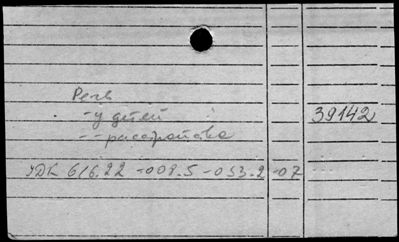 Речь
- у детей
39142
- - расстройства
УДК 616.22 -008.5 -053.2 -07